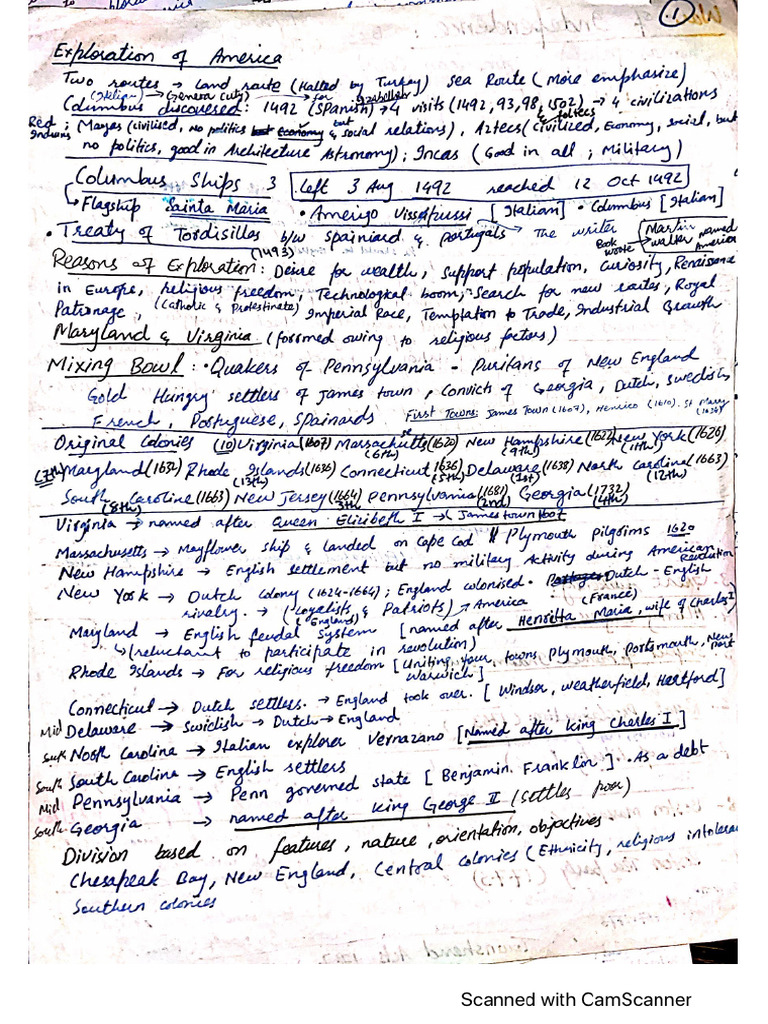 1
Exploration of America
Two routes → Land route (Halted by Turkey) Sea Route (More emphasize)
(Italian) → (Genova City) → for Izabella
Columbus discovered: 1492 (Spanish) → 4 visits (1492, 93, 98, 1502) → 4 civilizations
& Toltecs
Red Indians; Mayas (civilised, no politics but economy & social relations), Aztecs (Civilized, Economy, social, but
no politics, good in Architecture Astronomy); Incas (Good in all; Military)
Columbus Ships 3 Left 3 Aug 1492 reached 12 Oct 1492
Flagship Sainta Maria • Amerigo Vissfussi [Italian] • Columbus [Italian]
• Treaty of Tordisillas b/w Spainiard & Portugals → The writer Book wrote → Martin walter named America
(1493)
Reasons of Exploration: Desire for wealth, Support population, Curiosity, Renaissance
in Europe, religious freedom, Technological boom, Search for new routes, Royal
Patronage, (Catholic & Protestinate) Imperial Race, Temptation to Trade, Industrial Growth
Maryland & Virginia (formed owing to religious factors)
Mixing Bowl: • Quakers of Pennsylvania - Puritans of New England
Gold Hungry settlers of James town, Convicts of Georgia, Dutch, swedish,
French, Postuguese, Spainards First Towns: James Town (1607), Henrico (1610). St Mary (1634)
Original Colonies (10) Virginia (1607) Massachutts (1620) New Hampshire (1622) New York (1626)
(6th) (9th) (11th)
(7th) Maryland (1632) Rhode Islands (1636) Connecticut (1636) Delaware (1638) North Carolina (1663)
(13th) (5th) (1st) (12th)
South Caroline (1663) New Jersey (1664) Pennsylvania (1681) Georgia (1732)
(8th) 3th (2nd) (4th)
Virginia → named after Queen Elizibeth I → James town 1607
Massachusetts → Mayflower ship & landed on Cape Cod || Plymouth pilgrims 1620
New Hampshire → English settlement but no military Activity during American Revolution
New York → Dutch colony (1624-1664); England colonised • Dutch - English
rivalry. → (Loyalists & Patriots) → America (France)
(England)
Maryland → English feudal system [named after Henritta Maria, wife of Charles I]
↳ (reluctant to participate in revolution)
Rhode Islands → For religious freedom [Uniting four towns Plymouth, Portsmouth, New port
Warwich]
Connecticul → Dutch settlers. → England took over. [Windsor, weatherfield, Hartford]
Mid Delaware → Swidish → Dutch → England
South North Carolina → Italian explorer Vernazano [Named after King Charles I]
South South Carolina → English settlers
Mid Pennsylvania → Penn governed state [Benjamin Franklin]. As a debt
South Georgia → named after King George II (settles poor)
Division based on features, nature, orientation, objectives
Chesapeak Bay, New England, Central colonies (Ethnicity, religious intoleran
Southern colonies
Scanned with CamScanner